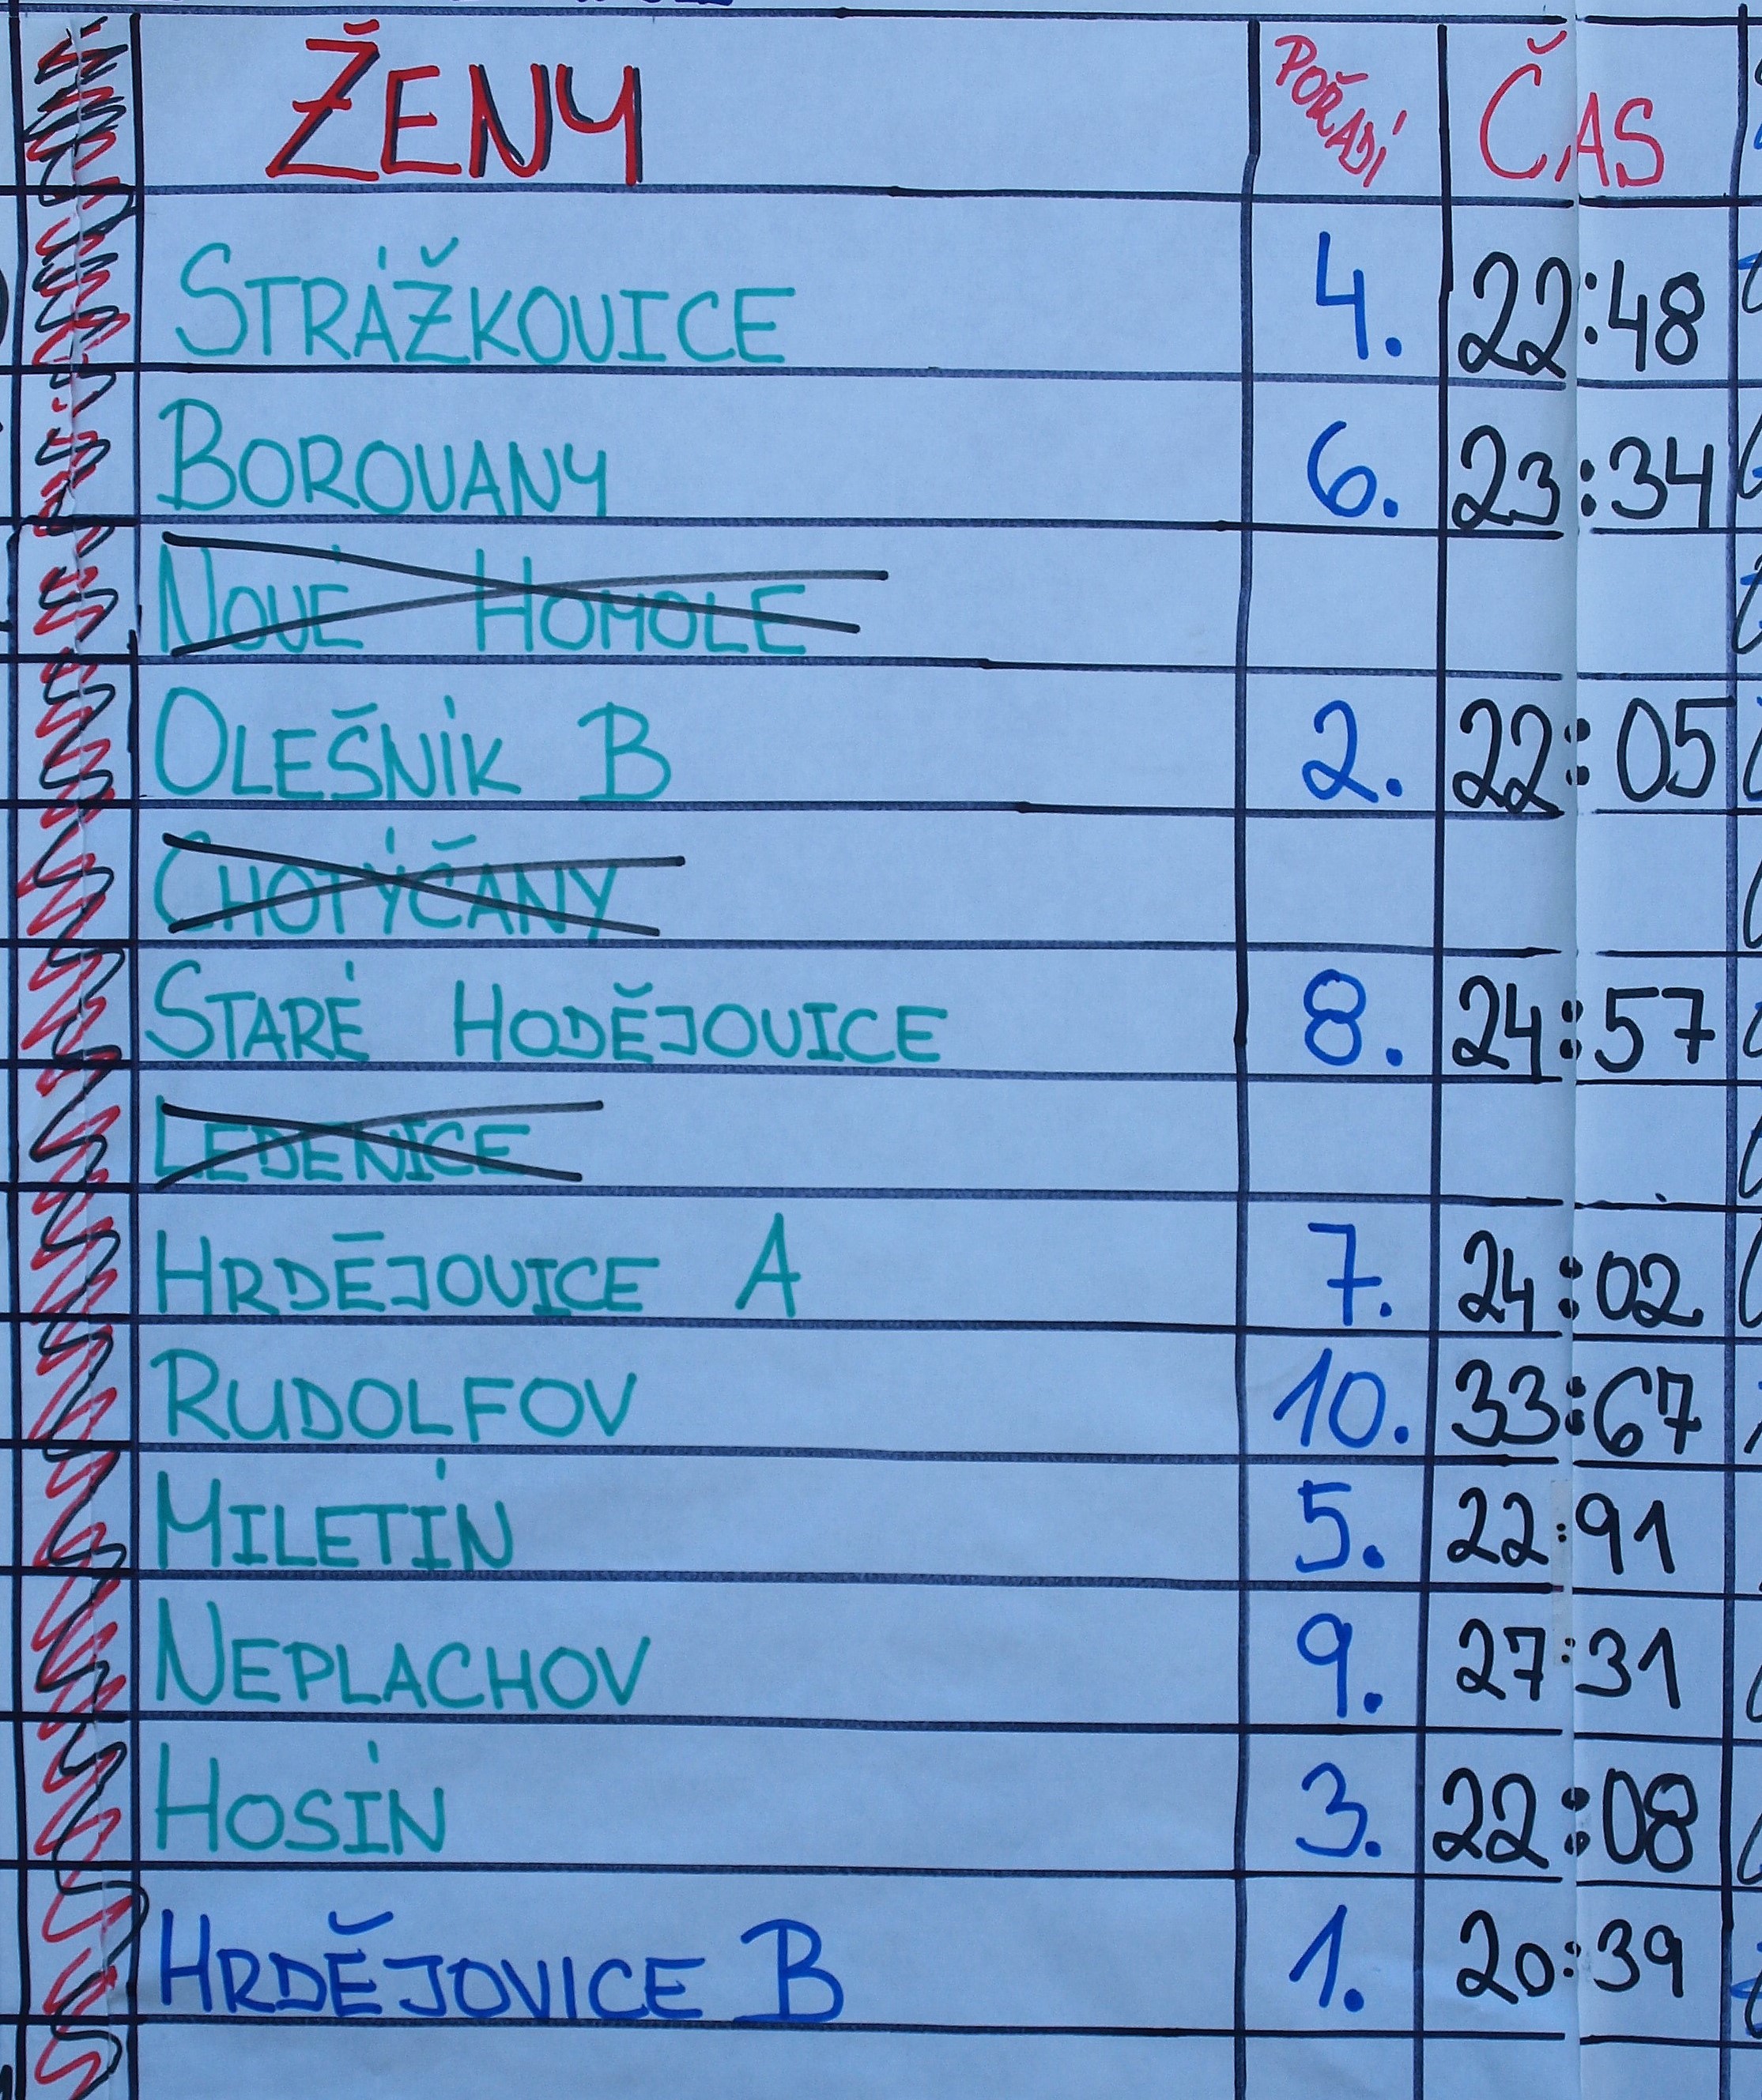 ŽENY POŘADÍ ČAS
STRÁŽKOVICE 4. 22:48
BOROVANY 6. 23:34
NOVÉ HOMOLE
OLEŠNÍK B 2. 22:05
CHOTÝČANY
STARÉ HODĚJOVICE 8. 24:57
LEDENICE
HRDĚJOVICE A 7. 24:02
RUDOLFOV 10. 33:67
MILETÍN 5. 22:91
NEPLACHOV 9. 27:31
HOSÍN 3. 22:08
HRDĚJOVICE B 1. 20:39